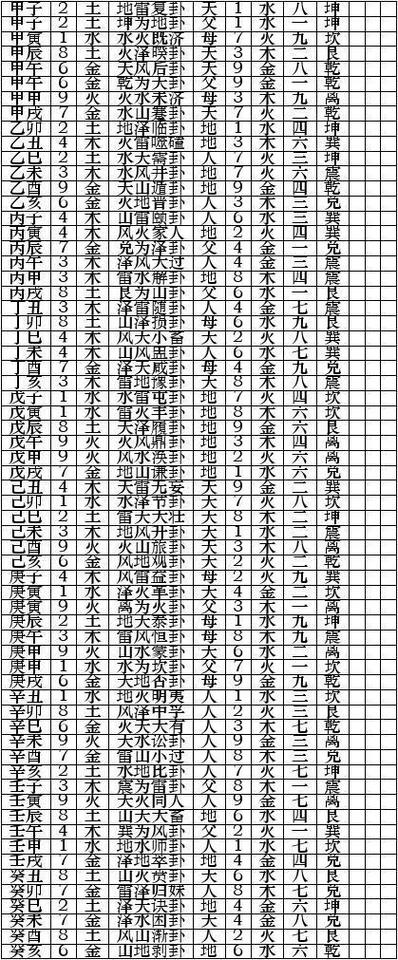 甲子 2 土 地雷复卦 天 1 水 八 坤
甲子 2 土 坤为地卦 父 1 水 一 坤
甲寅 1 水 水火既济 母 7 火 九 坎
甲辰 8 土 火泽暌卦 天 3 木 二 艮
甲午 6 金 天风后卦 天 9 金 八 乾
甲午 6 金 乾为大卦 父 9 金 一 乾
甲申 9 火 火水未济 母 3 木 九 离
甲戌 7 金 水山蹇卦 天 7 火 二 乾
乙卯 2 土 地泽临卦 地 1 水 四 坤
乙丑 4 木 火雷噬磕 地 3 木 六 巽
乙巳 2 土 水大需卦 人 7 火 三 坤
乙未 3 木 水风井卦 地 7 火 六 震
乙酉 9 金 天山遁卦 地 9 金 四 乾
乙亥 6 金 火地晋卦 人 3 木 三 兑
丙子 4 木 山雷颐卦 人 6 水 三 巽
丙寅 4 木 风火家人 地 2 火 四 巽
丙辰 7 金 兑为泽卦 父 4 金 一 兑
丙午 3 木 泽风大过 人 4 金 三 震
丙申 3 木 雷水解卦 地 8 木 四 震
丙戌 8 土 艮为山卦 父 6 水 一 艮
丁丑 3 木 泽雷随卦 人 4 金 七 震
丁卯 8 土 山泽损卦 母 6 水 九 艮
丁巳 4 木 风大小畜 大 2 火 八 巽
丁未 4 木 山风蛊卦 人 6 水 七 巽
丁酉 7 金 泽大咸卦 母 4 金 九 兑
丁亥 3 木 雷地豫卦 大 8 木 八 震
戊子 1 水 水雷屯卦 地 7 火 四 坎
戊寅 1 水 雷火丰卦 地 8 木 六 坎
戊辰 8 土 大泽履卦 地 9 金 六 艮
戊午 9 火 火风鼎卦 地 3 木 四 离
戊申 9 火 风水涣卦 地 2 火 六 离
戊戌 7 金 地山谦卦 地 1 水 六 兑
己丑 4 木 大雷无妄 天 9 金 二 巽
己卯 1 水 水泽节卦 大 7 火 八 坎
己巳 2 土 雷大大壮 大 8 木 二 坤
己未 3 木 地风升卦 大 1 水 二 震
己酉 9 火 火山旅卦 大 3 木 八 离
己亥 6 金 风地观卦 大 2 火 二 乾
庚子 4 木 风雷益卦 母 2 火 九 巽
庚寅 1 水 泽火革卦 大 4 金 二 坎
庚寅 9 火 离为火卦 父 3 木 一 离
庚辰 2 土 地大泰卦 母 1 水 九 坤
庚午 3 木 雷风恒卦 母 8 木 九 震
庚申 9 火 山水蒙卦 大 6 水 二 离
庚申 1 水 水为坎卦 父 7 火 一 坎
庚戌 6 金 大地否卦 母 9 金 九 乾
辛丑 1 水 地火明夷 人 1 水 三 坎
辛卯 8 土 风泽中孚 人 2 火 三 艮
辛巳 6 金 火大大有 人 3 木 七 乾
辛未 9 火 大水讼卦 人 9 金 三 离
辛酉 7 金 雷山小过 人 8 木 三 兑
辛亥 2 土 水地比卦 人 7 火 七 坤
壬子 3 木 震为雷卦 父 8 木 一 震
壬寅 9 火 大火同人 人 9 金 七 离
壬辰 8 土 山大大畜 地 6 水 四 艮
壬午 4 木 巽为风卦 父 2 火 一 巽
壬申 1 水 地水师卦 人 1 水 七 坎
壬戌 7 金 泽地萃卦 地 4 金 四 兑
癸丑 8 土 山火贲卦 大 6 水 八 艮
癸卯 7 金 雷泽归妹 人 8 木 七 兑
癸巳 2 土 泽大诀卦 地 4 金 六 坤
癸未 7 金 泽水困卦 大 4 金 八 兑
癸酉 8 土 风山渐卦 人 2 火 七 艮
癸亥 6 金 山地剥卦 地 6 水 六 乾